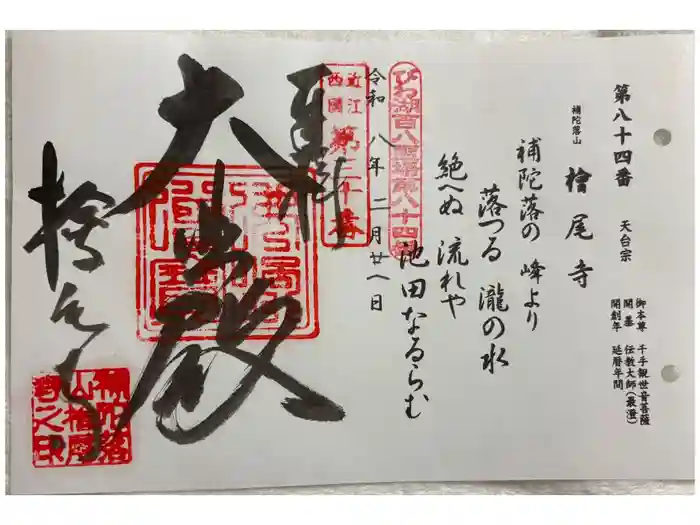 第八十四番 天台宗
補陀落山 檜尾寺
御本尊 千手観世音菩薩
開基 伝教大師(最澄)
開創年 延暦年間
補陀落の 峰より
落つる 瀧の水
絶へぬ 流れや
池田なるらむ
びわ湖百八霊場第八十四番
令和八年二月廿八日
近江
西國
奉拝
大悲殿
檜尾寺
補陀落
山檜尾
寺之印